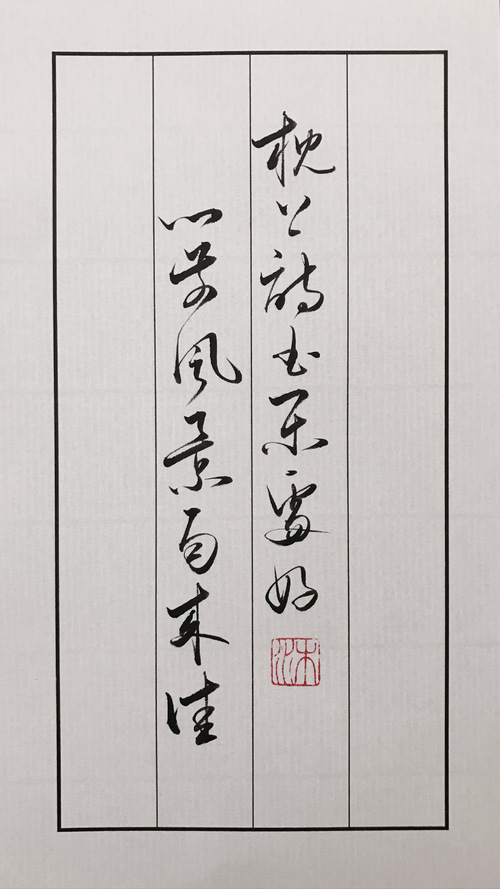 枕上詩書閑處好
門前風景雨來佳